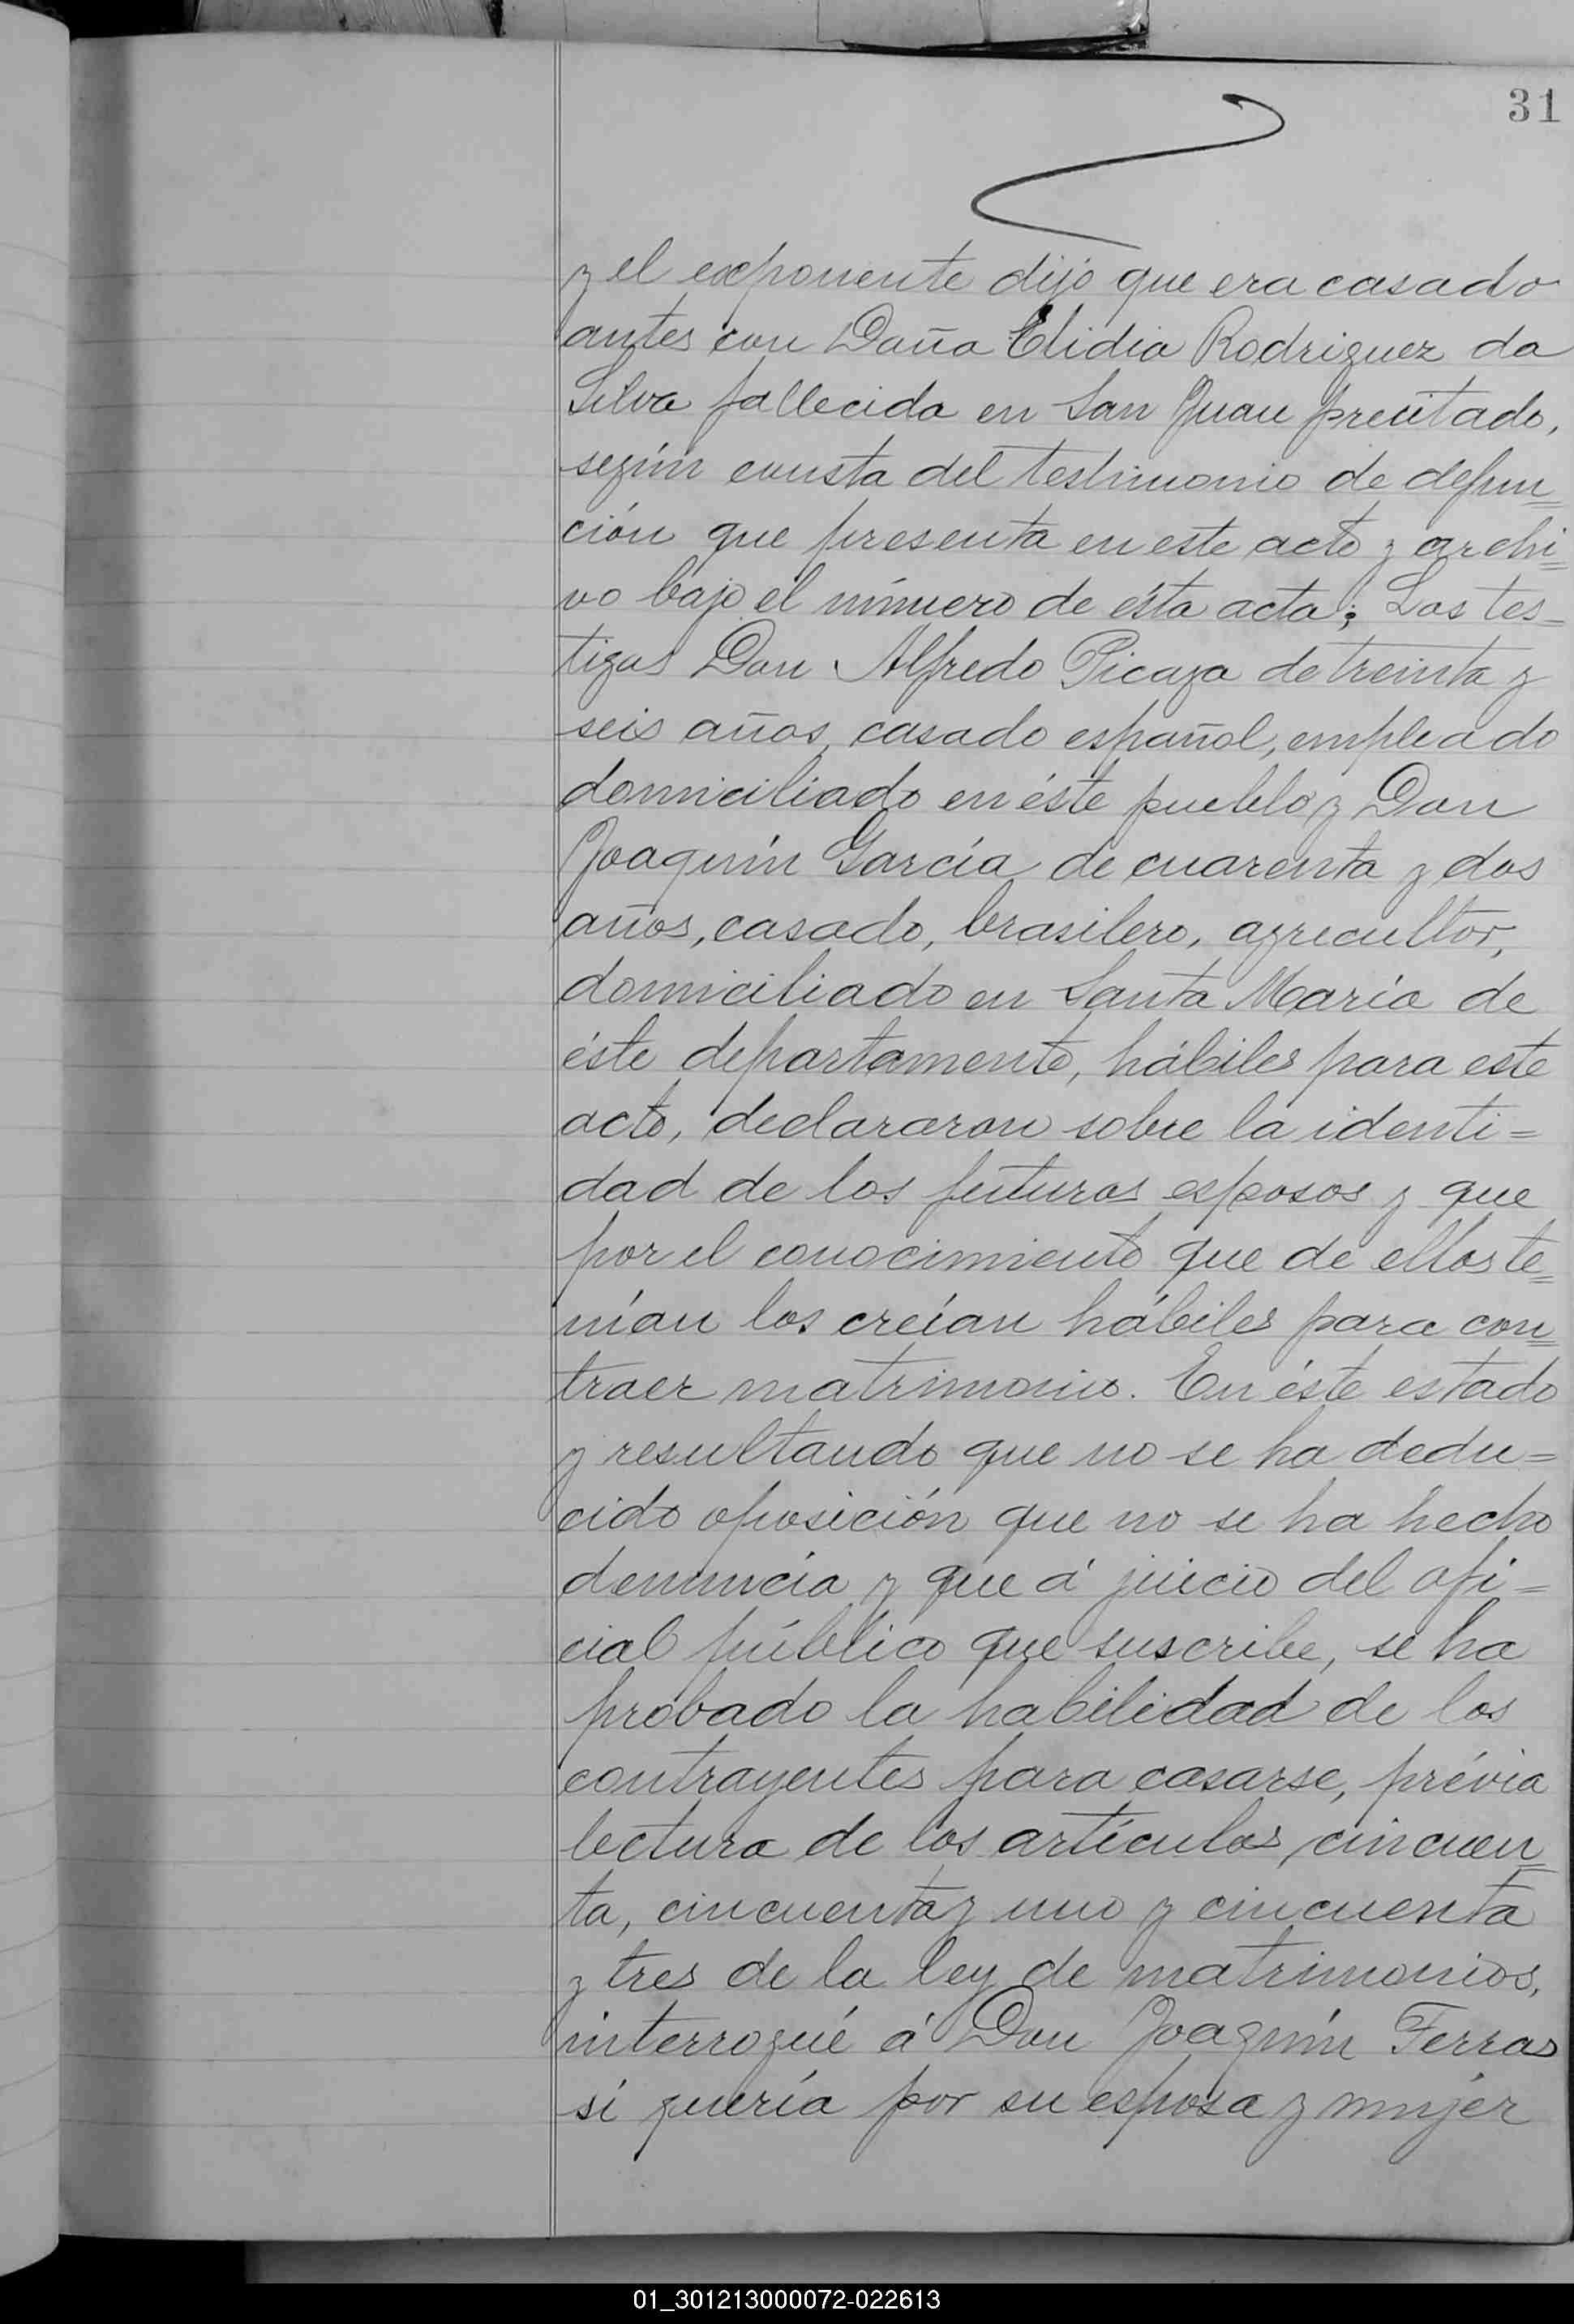 31
y el exponente dijo que era casado
antes con Doña Elidia Rodriguez da
Silva fallecida en San Juan precitado,
según consta del testimonio de defun=
ción que presenta en este acto y archi=
vo bajo el número de ésta acta; Los tes-
tigos Don Alfredo Picaza de treinta y
seis años, casado español, empleado
domiciliado en éste pueblo y Don
Joaquín García de cuarenta y dos
años, casado, brasilero, agricultor,
domiciliado en Santa María de
éste departamento, hábiles para este
acto, declararon sobre la identi=
dad de los futuros esposos y que
por el conocimiento que de ellos te=
nían los creían hábiles para con=
traer matrimonio. En éste estado
y resultando que no se ha dedu=
cido oposición que no se ha hecho
denuncia y que á juicio del ofi=
cial público que suscribe, se ha
probado la habilidad de los
contrayentes para casarse, prévia
lectura de los artículos cincuen=
ta, cincuenta y uno y cincuenta
y tres de la ley de matrimonios,
interrogué á Don Joaquín Ferras
si quería por su esposa y mujer
01_301213000072-022613